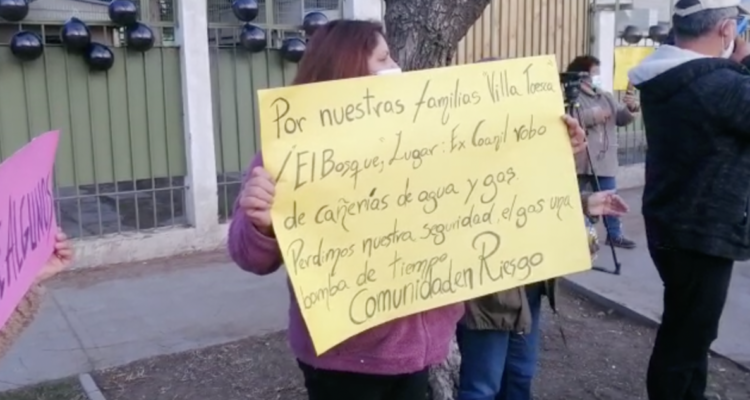 Por nuestras familias Villa Toresca
/El Bosque, Lugar: Ex Coanil robo
de cañerías de agua y gas
Perdimos nuestra seguridad, el gas una
bomba de tiempo
Comunidad en Riesgo
ALGUNOS